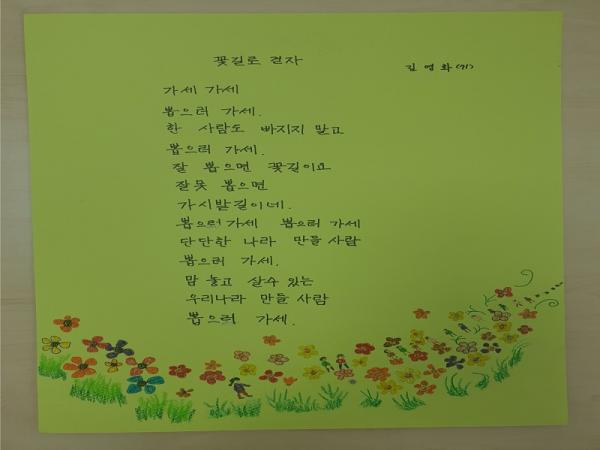 꽃길로 걷자
김영화(71)
가세 가세
뽑으러 가세.
한 사람도 빠지지 말고
뽑으러 가세.
잘 뽑으면 꽃길이요
잘못 뽑으면
가시밭길이네.
뽑으러 가세 뽑으러 가세
단단한 나라 만들 사람
뽑으러 가세.
맘 놓고 살수 있는
우리나라 만들 사람
뽑으러 가세.